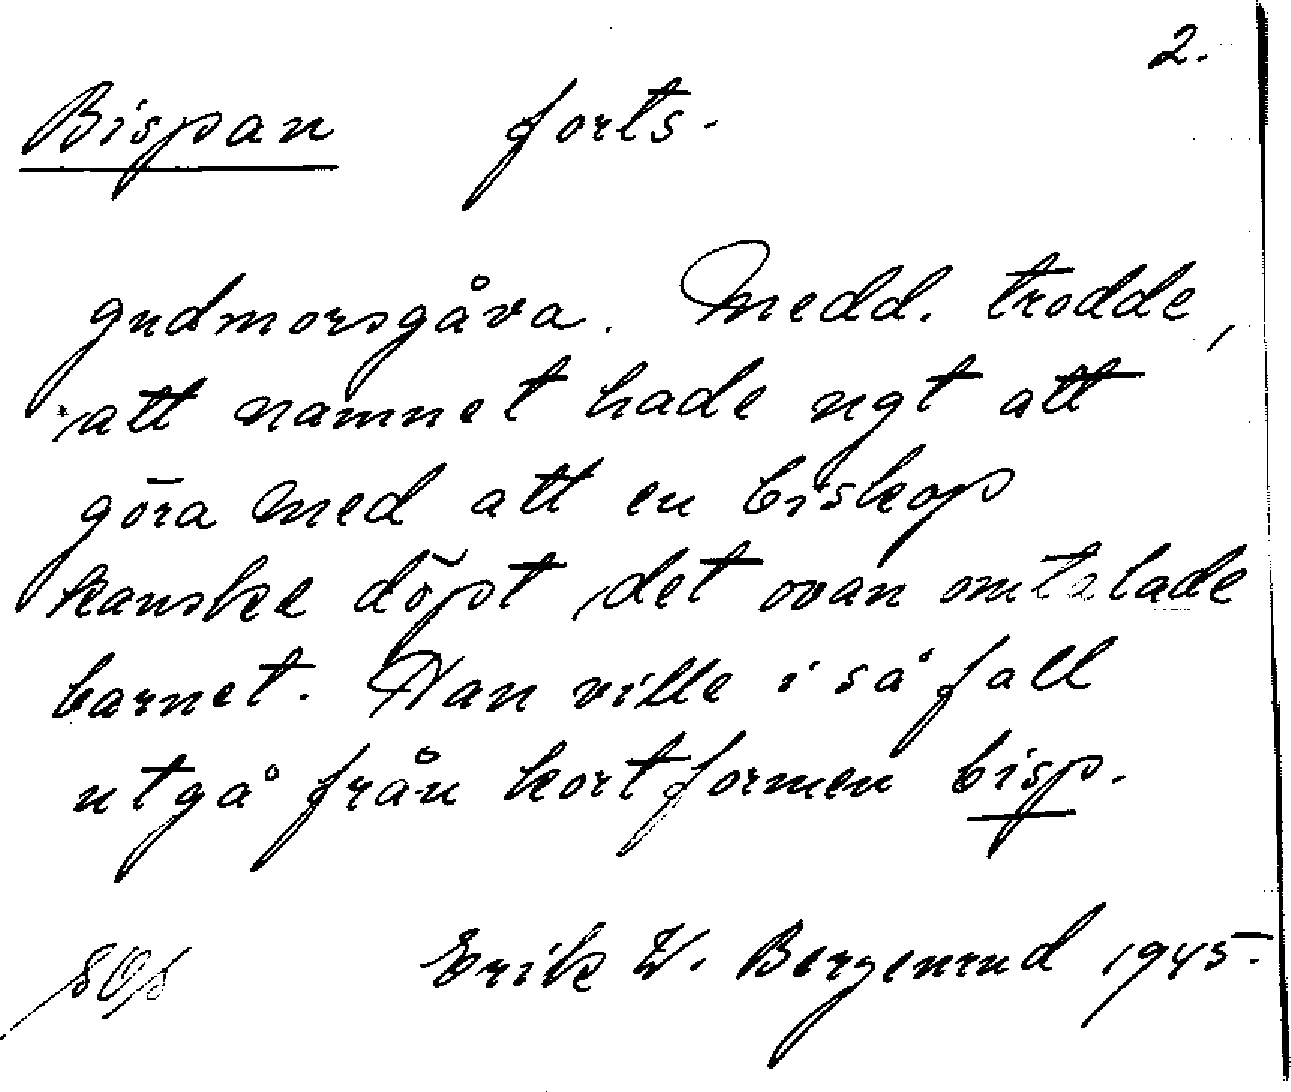 2.
Bispan forts.
gudmorsgåva. Medd. trodde,
att namnet hade ngt att
göra med att en biskop
kanske döpt det ovan omtalade
barnet. Han ville i så fall
utgå från kortformen bisp.
Erik W. Bergenrud 1945.